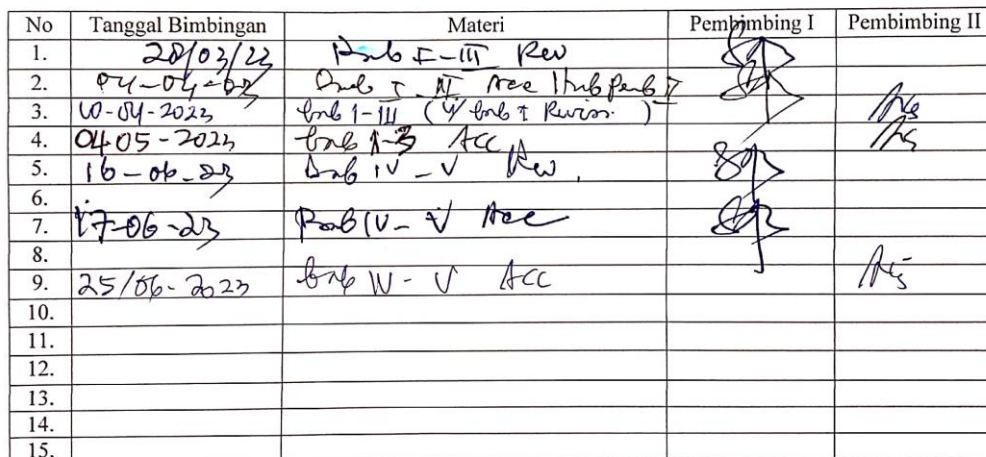 No Tanggal Bimbingan Materi Pembimbing I Pembimbing II
1. 28/03/23 Bab I-III Rev
2. 04-04-23 Bab I-III Acc Hub Pemb II
3. 10-04-2023 bab I-III ( bab I Revisi )
4. 04 05-2023 bab 1-3 ACC
5. 16-06-23 Bab IV-V Rev.
6.
7. 17-06-23 Bab IV-V Acc
8.
9. 25/06-2023 bab IV-V Acc
10.
11.
12.
13.
14.
15.